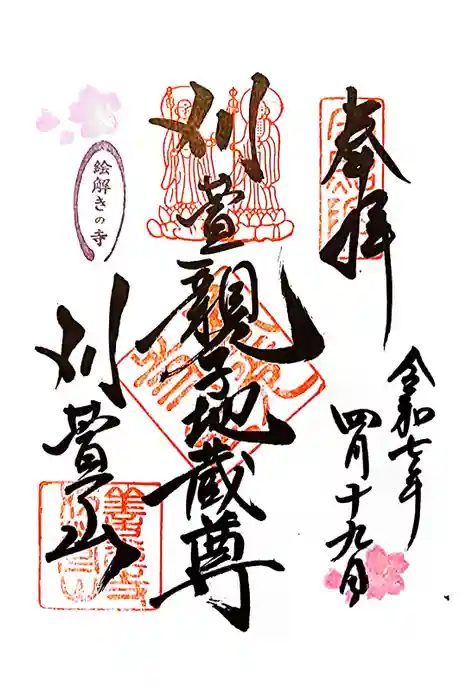 奉拝
令和七年
四月十九日
刈萱親子地蔵尊
絵解きの寺
刈萱山